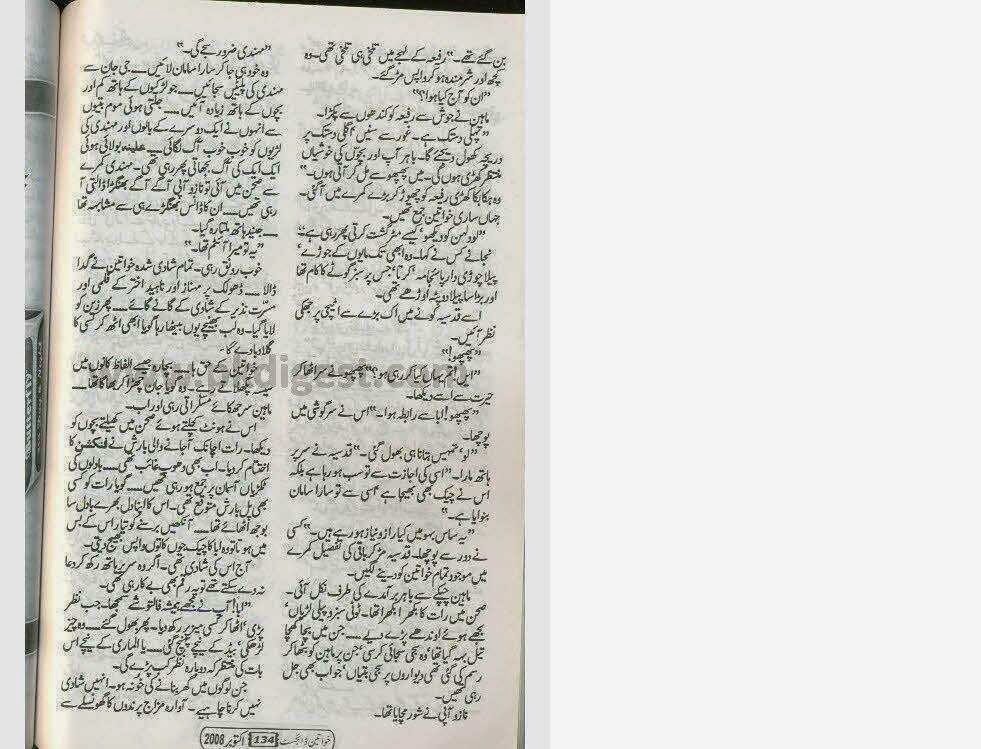 بن گئے تھے۔" رفیعہ کے لہجے میں تلخی ہی تلخی تھی۔ وہ
کچھ اور شرمندہ ہو کر واپس مڑ گئے۔
"ان کو آج کیا ہوا؟"
ماہین نے جوش سے رفیعہ کو کندھوں سے پکڑا۔
دستک ہے۔ غور سے سنیں اگلی دستک پر
دریچہ کھول دیجئے گا۔ باہر آپ اور بچوں کی خوشیاں
منتظر کھڑی ہوں گی۔ میں پھپھو سے مل کر آتی ہوں۔"
وہ ہکا بکا کھڑی رفیعہ کو چھوڑ کر بڑے کمرے میں آگئی۔
جہاں ساری خواتین جمع تھیں۔
"لو دلہن کو دیکھو' کیسے مٹر گشت کرتی پھر رہی ہے۔"
نجانے کس نے کہا۔ وہ ابھی تک مایوں کے جوڑے'
پیلا چوڑی دار پاجامہ' کرتا' جس پر سبز گوٹے کا کام تھا
اور بڑا سا پیلا دوپٹہ اوڑھے تھی۔
اسے قدسیہ کونے میں اک بڑے سے اٹیچی پر جھکی
نظر آئیں۔
"پھپھو!"
"ایں! تم یہاں کیا کر رہی ہو؟" پھپھو نے سر اٹھا کر
حیرت سے اسے دیکھا۔
"پھپھو! ابا سے رابطہ ہوا۔" اس نے سرگوشی میں
پوچھا۔
"لو' تمہیں بتانا ہی بھول گئی۔" قدسیہ نے سر پر
ہاتھ مارا۔ "اسی کی اجازت سے تو سب ہو رہا ہے بلکہ
اس نے چیک بھی بھیجا ہے' اسی سے تو سارا سامان
بنوایا ہے۔"
"یہ ساس بہو میں کیا راز و نیاز ہو رہے ہیں۔" کسی
نے دور سے پوچھا۔ قدسیہ مڑ کر باقی کی تفصیل کمرے
میں موجود تمام خواتین کو دینے لگیں۔
ماہین چپکے سے باہر برآمدے کی طرف نکل آئی۔
صحن میں رات کا بکھرا بکھرا تھا۔ ٹوٹی سبز و پیلی لڑیاں'
بجھے ہوئے اوندھے پڑے دیے ---- جن میں بچا کھچا
تیل بہہ گیا تھا' وہ سجی سجائی کرسی' جن پر ماہین کو بٹھا کر
رسم کی گئی تھی دیواروں پر سجی بتیاں' جو اب بھی جل
رہی تھیں۔
نازو آپی نے شور مچایا تھا۔
"مہندی ضرور سجے گی۔"
وہ خود ہی جا کر سارا سامان لائیں ---- جی جان سے
مہندی کی پلیٹیں سجائیں ---- جو لڑکیوں کے ہاتھ کم اور
بچوں کے ہاتھ زیادہ آئیں ---- جلتی ہوئی موم بتیوں
سے انہوں نے ایک دوسرے کے بالوں اور مہندی کی
لڑیوں کو خوب خوب آگ لگائی ---- علینہ بولائی ہوئی
ایک ایک کی آگ بجھاتی پھر رہی تھی۔ مہندی کمرے
سے صحن میں آئی تو نازو آپی آگے آگے بھنگڑا ڈالتی آ
رہی تھیں ---- ان کا ڈانس بھنگڑے ہی سے مشابہہ تھا
---- جنید ہاتھ ملتا رہ گیا۔
"یہ تو میرا آئٹم تھا۔"
خوب رونق رہی۔ تمام شادی شدہ خواتین نے گدا
ڈالا ---- ڈھولک پر مہناز اور ناہید اختر کے فلمی اور
مسرت نذیر کے شادی کے گانے گائے ---- پھر زین کو
لایا گیا۔ وہ لب بھینچے یوں بیٹھا رہا گویا ابھی اٹھ کر کسی کا
گلا دبا دے گا۔
خواتین کے حق ہا ---- بیچارہ جیسے الفاظ کانوں میں
سیسہ پگھلاتے رہے۔ وہ گویا جان چھڑا کر بھاگا تھا ----
ماہین سر جھکائے مسکراتی رہی اور اب۔
اس نے ہونٹ کچلتے ہوئے صحن میں کھیلتے بچوں کو
دیکھا۔ رات اچانک آجانے والی بارش نے فنکشن کا
اختتام کر دیا۔ اب بھی دھوپ غائب تھی ---- بادلوں کی
ٹکڑیاں آسمان پر جمع ہو رہی تھیں ---- گویا رات کو کسی
بھی پل بارش متوقع تھی۔ اس کا اپنا دل بھرے بادل سا
بوجھ اٹھائے تھا ---- آنکھیں برسنے کو تیار اس کے بس
میں ہوتا تو وہ ابا کا چیک جوں کا توں واپس بھیج دیتی۔
آج اس کی شادی تھی۔ اگر وہ سر پر ہاتھ رکھ کر دعا
نہ دے سکتے تھے تو یہ رقم بھی بے کار ہی تھی۔
"ابا! آپ نے مجھے ہمیشہ فالتو شے سمجھا۔ جب نظر
پڑی' اٹھا کر کسی میز پر رکھ دیا۔ پھر بھول گئے ---- وہ چیز
لڑھکی' بیڈ کے نیچے پہنچ گئی ---- یا الماری کے نیچے اس
بات کی منتظر کہ دوبارہ نظر کب پڑے گی۔
جن لوگوں میں گھر بنانے کی خُو نہ ہو۔ انہیں شادی
نہیں کرنا چاہیے۔ آوارہ مزاج پرندوں کا گھونسلے سے
خواتین ڈائجسٹ 134 اکتوبر 2008